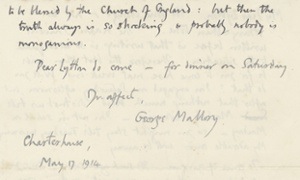 to be blessed by the Church of England: but then the
truth always is so shocking & probably nobody is
monogamous.
Dear Lytton do come – for dinner on Saturday
In affect.
George Mallory
Charterhouse,
May 17 1914